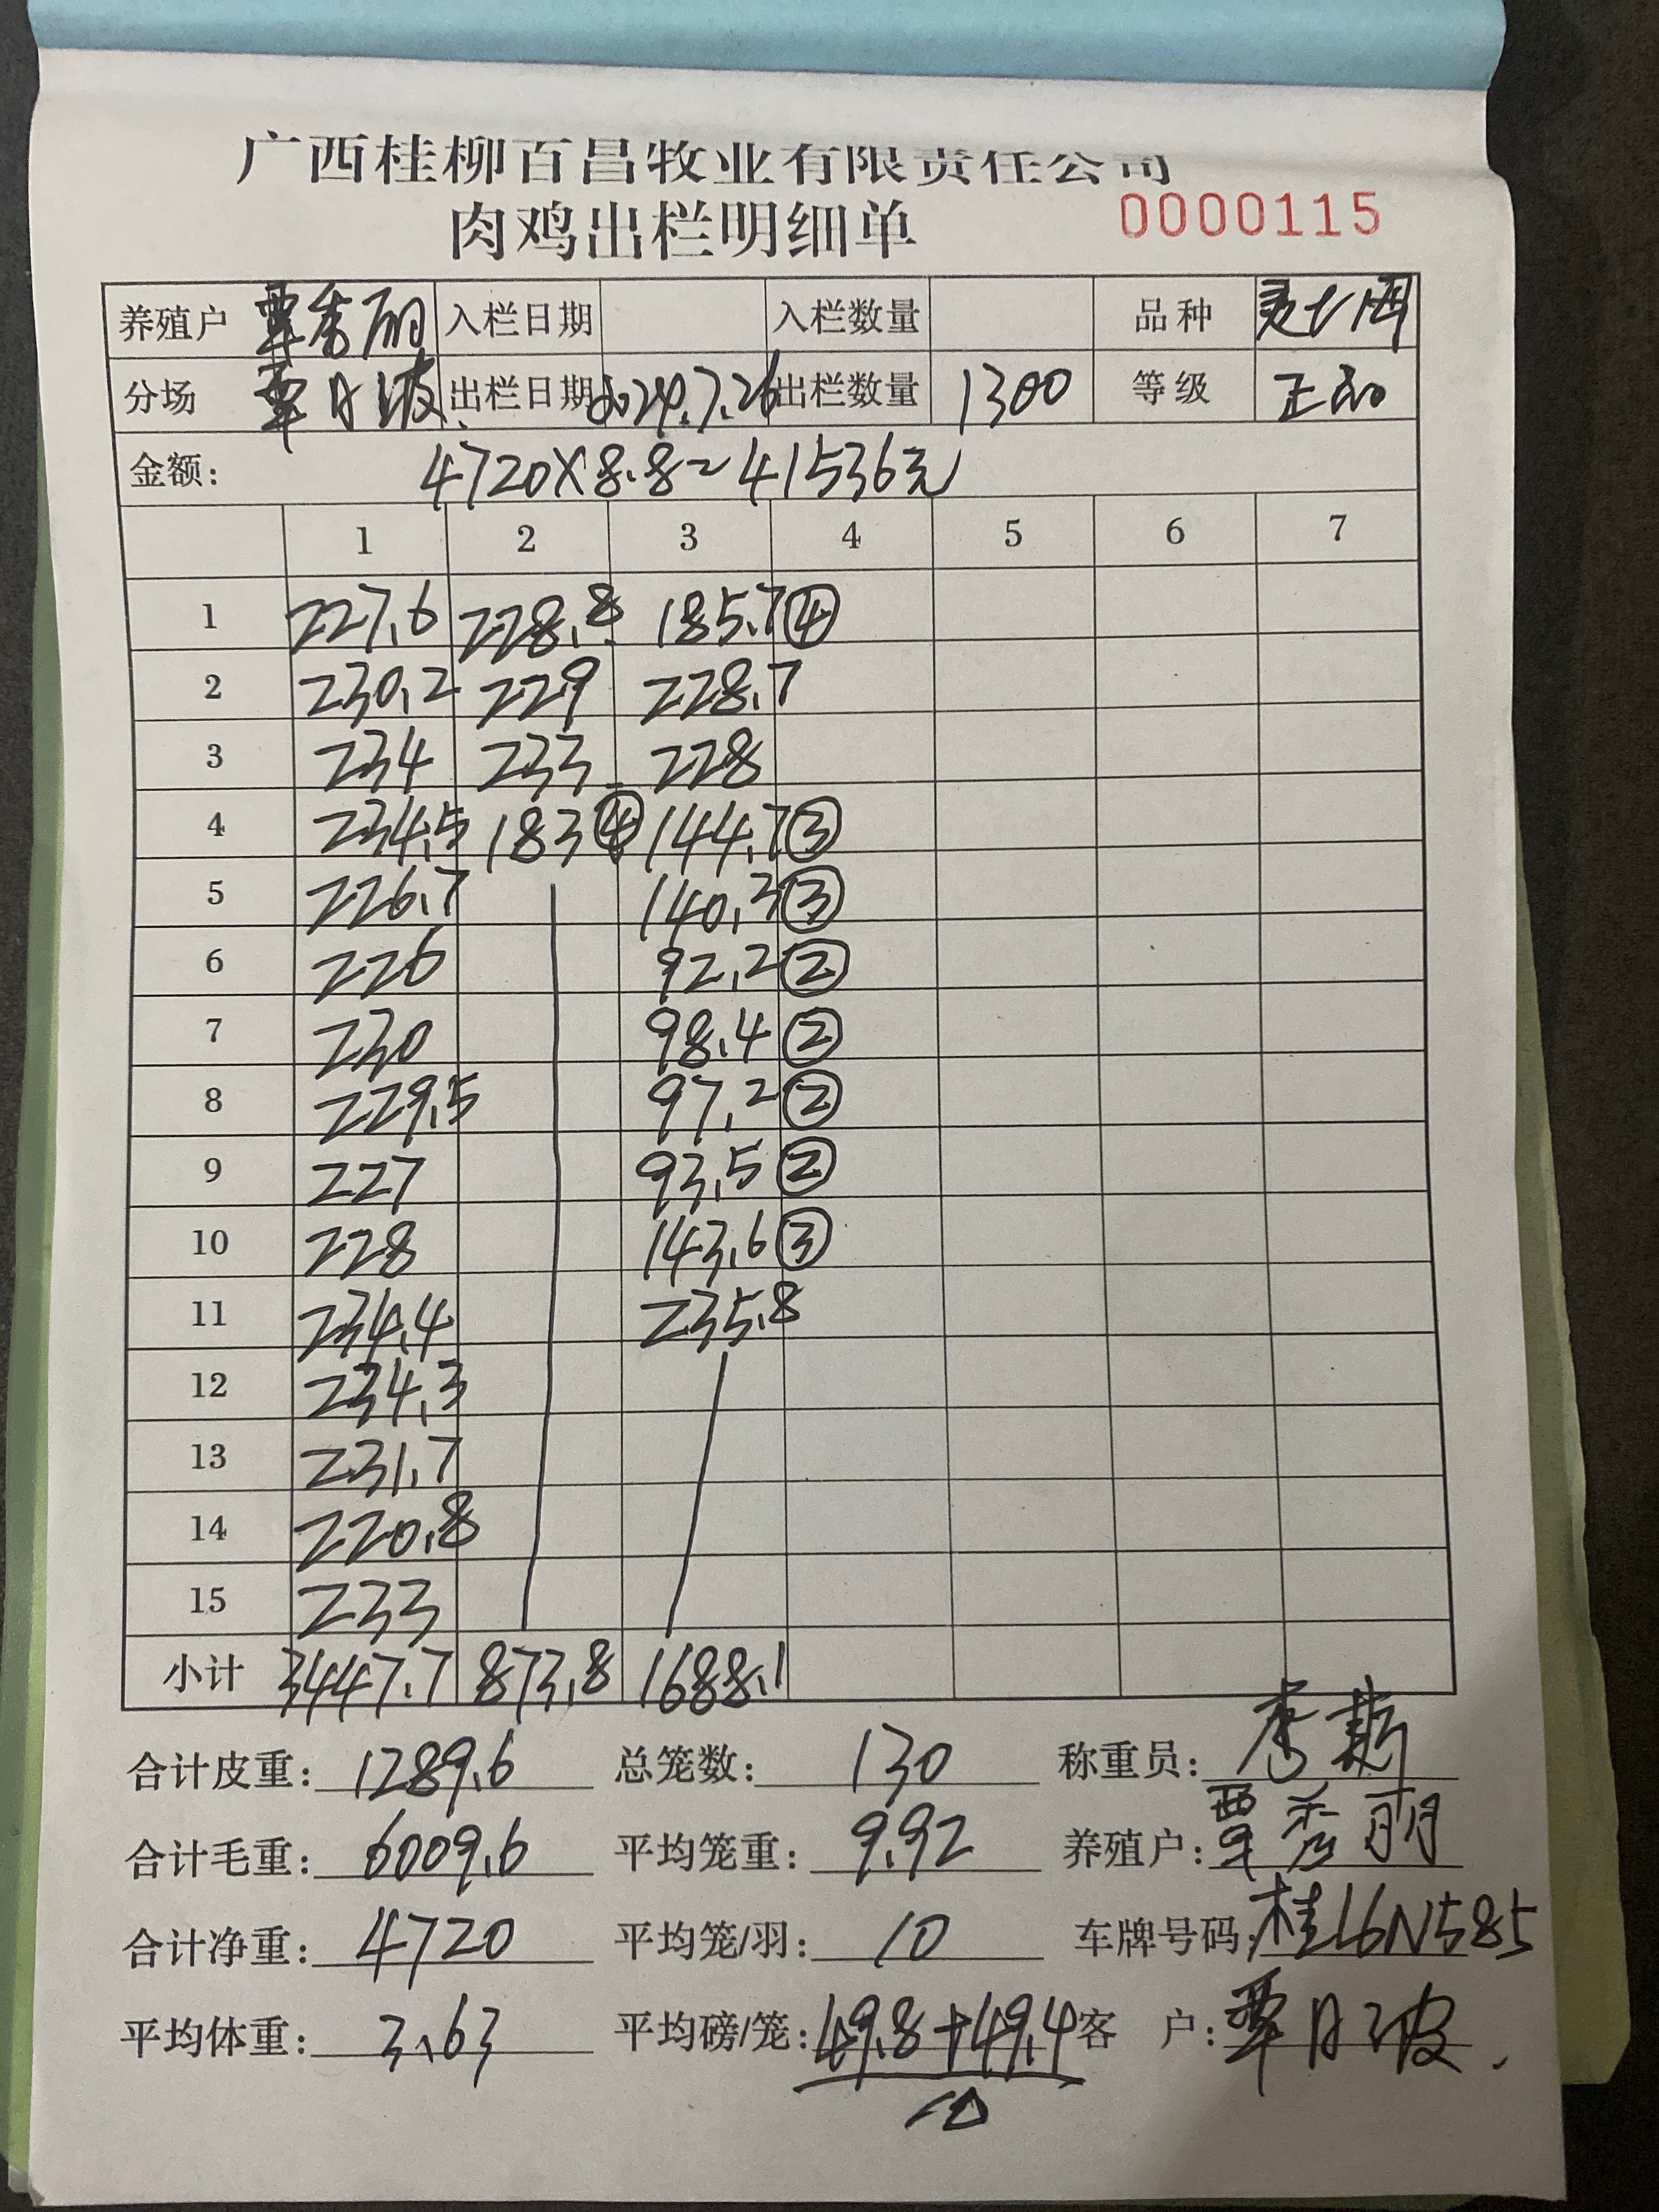 广西桂柳百昌牧业有限责任公司
肉鸡出栏明细单 0000115
养殖户 覃秀丽 入栏日期 入栏数量 品种
分场 覃月波 出栏日期 2024.7.26 出栏数量 1300 等级 正品
金额: 4720×8.8=41536元
1 2 3 4 5 6 7
1 227.6 228.8 185.7④
2 230.2 229 228.7
3 234 233 228
4 234.5 183④ 144.7③
5 226.7 140.3③
6 226 92.2②
7 230 98.4②
8 229.5 97.2②
9 227 93.5②
10 228 143.6③
11 234.4 235.8
12 234.3
13 231.7
14 220.8
15 233
小计 3447.7 873.8 1688.1
合计皮重: 1289.6 总笼数: 130 称重员:
合计毛重: 6009.6 平均笼重: 9.92 养殖户: 覃秀丽
合计净重: 4720 平均笼/羽: 10 车牌号码: 桂L6N585
平均体重: 3.63 平均磅/笼: 49.8+49.4 客 户: 覃月波.
10